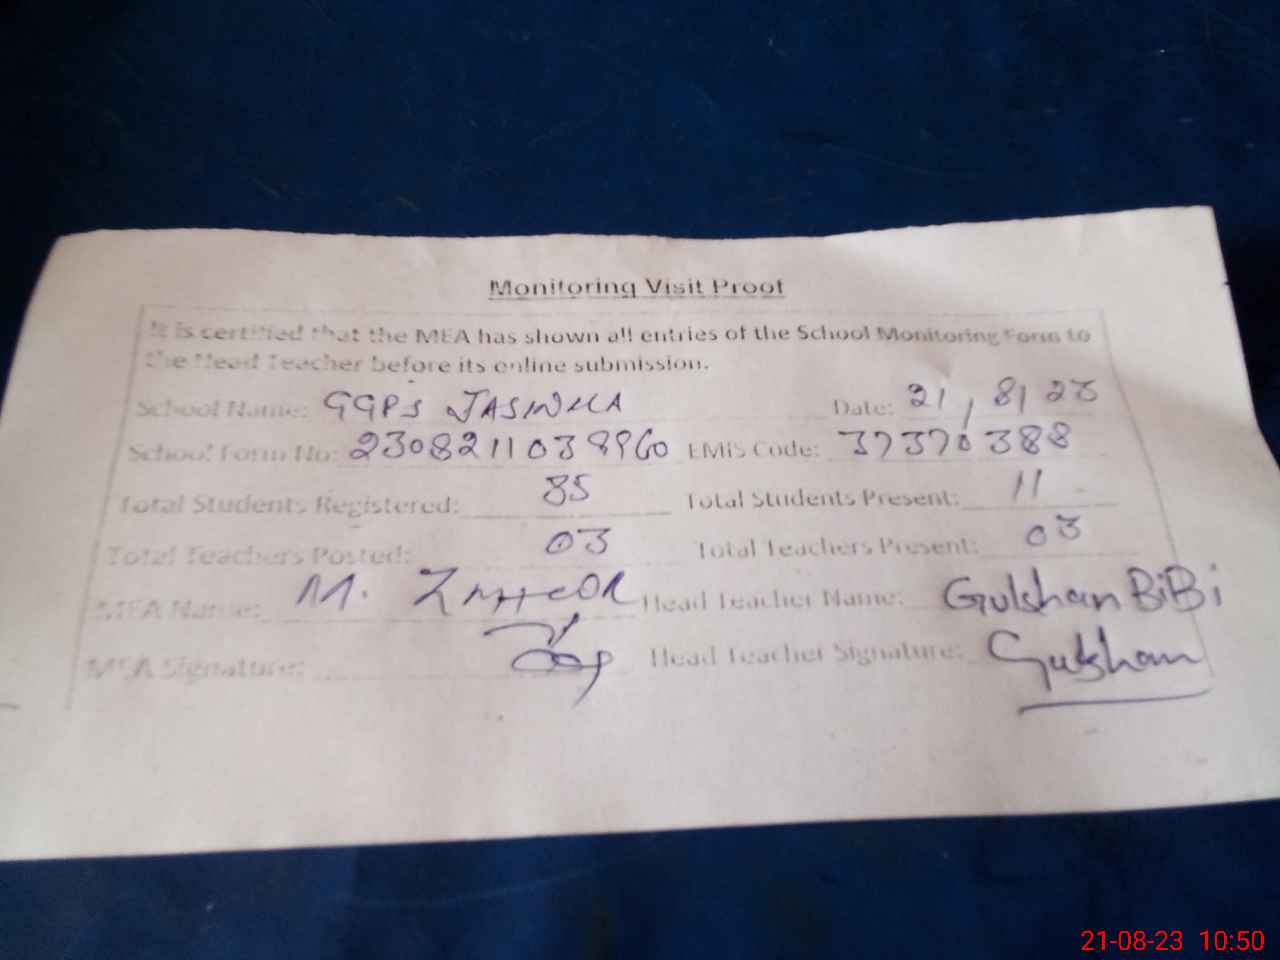 Monitoring Visit Proof
It is certified that the MEA has shown all entries of the School Monitoring Form to
the Head Teacher before its online submission.
School Name: GGPS JASWHA Date: 21, 8, 23
School Form No: 2308211038960 EMIS Code: 37370388
Total Students Registered: 85 Total Students Present: 11
Total Teachers Posted: 03 Total Teachers Present: 03
MEA Name: M. Head Teacher Name: Gulshan BiBi
MEA Signature: Head Teacher Signature: Gulshan
21-08-23 10:50